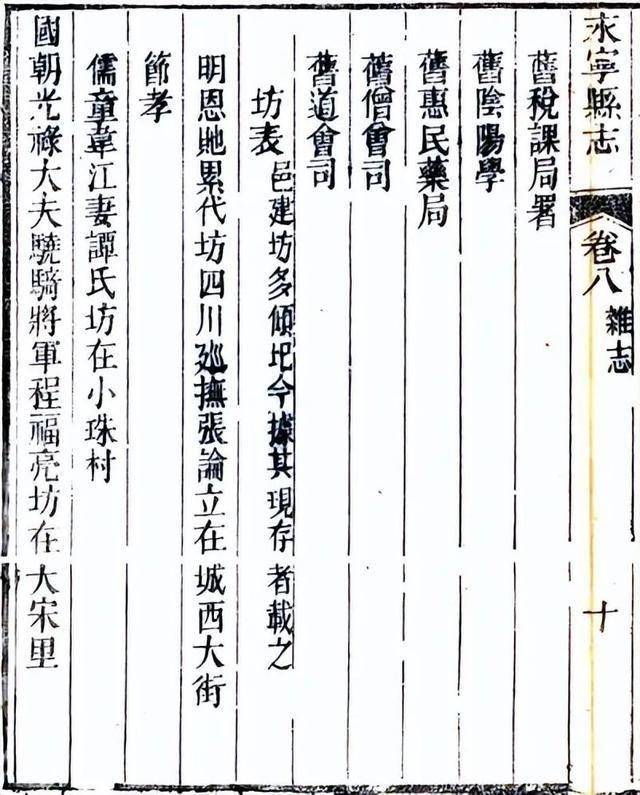 永寧縣志
卷八
雜志
十
舊稅課局署
舊陰陽學
舊惠民藥局
舊僧會司
舊道會司
坊表邑建坊多傾圯今據其現存者載之
明恩貤累代坊四川廵撫張論立在城西大街
節孝
儒童韋江妻譚氏坊在小珠村
國朝光祿大夫驍騎將軍程福亮坊在大宋里